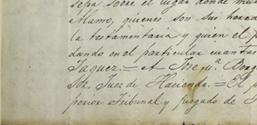 seba sobre el lugar donde mu
Alamo, quienes son sus hered
la testamentaria y quien el p
dando en el particular cuanta
Jaquez.= A Joaqn.
Sor. Juez de Hacienda.= El p
perior Tribunal y juzgado de